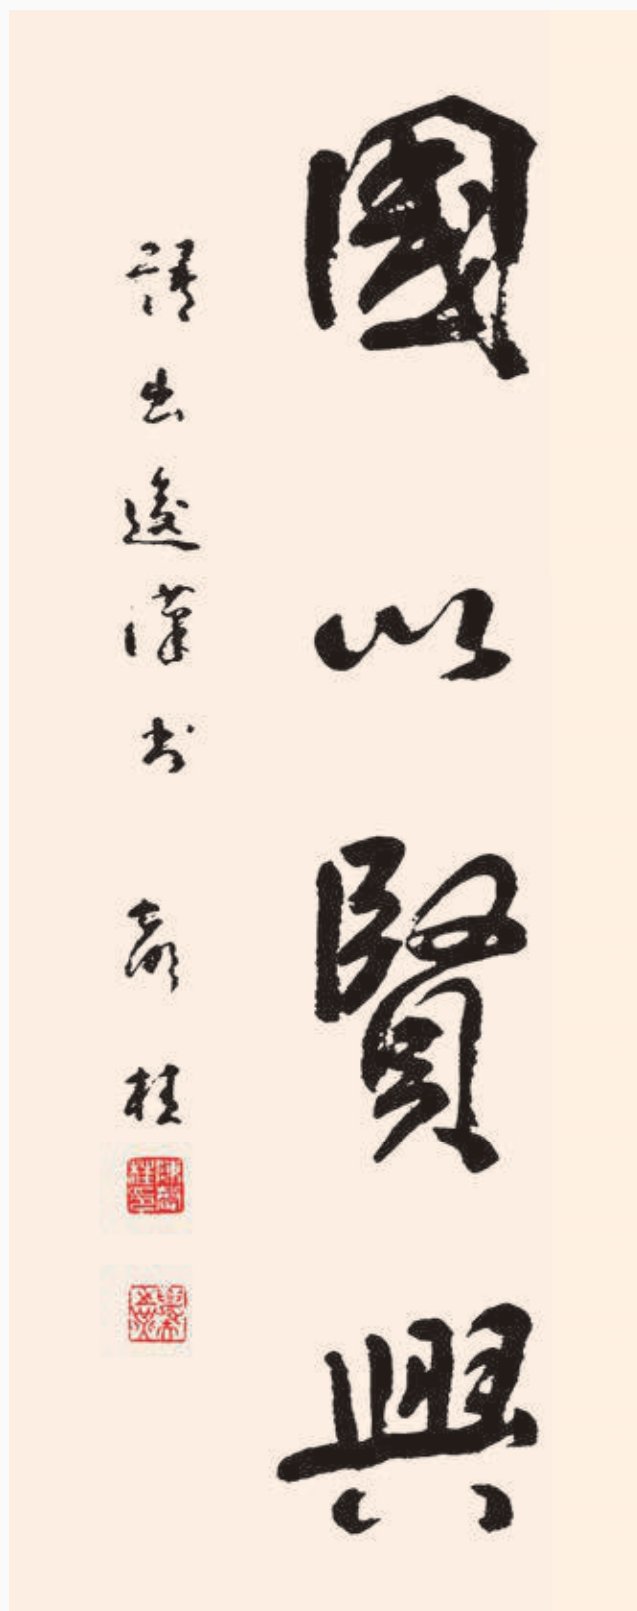 國以賢興
語出後漢書 嘉桂